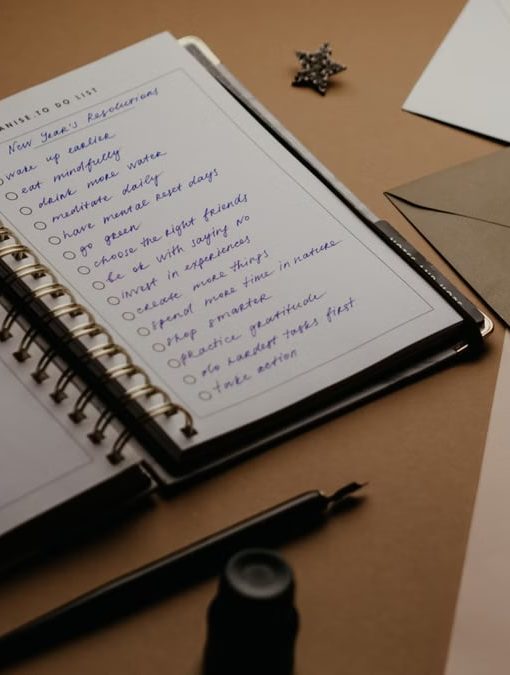 ANISE TO DO LIST
New Year's Resolutions
wake up earlier
eat mindfully
drink more water
meditate daily
have mental reset days
go green
choose the right friends
be ok with saying no
invest in experiences
create more things
spend more time in nature
shop smarter
practice gratitude
do hardest tasks first
take action